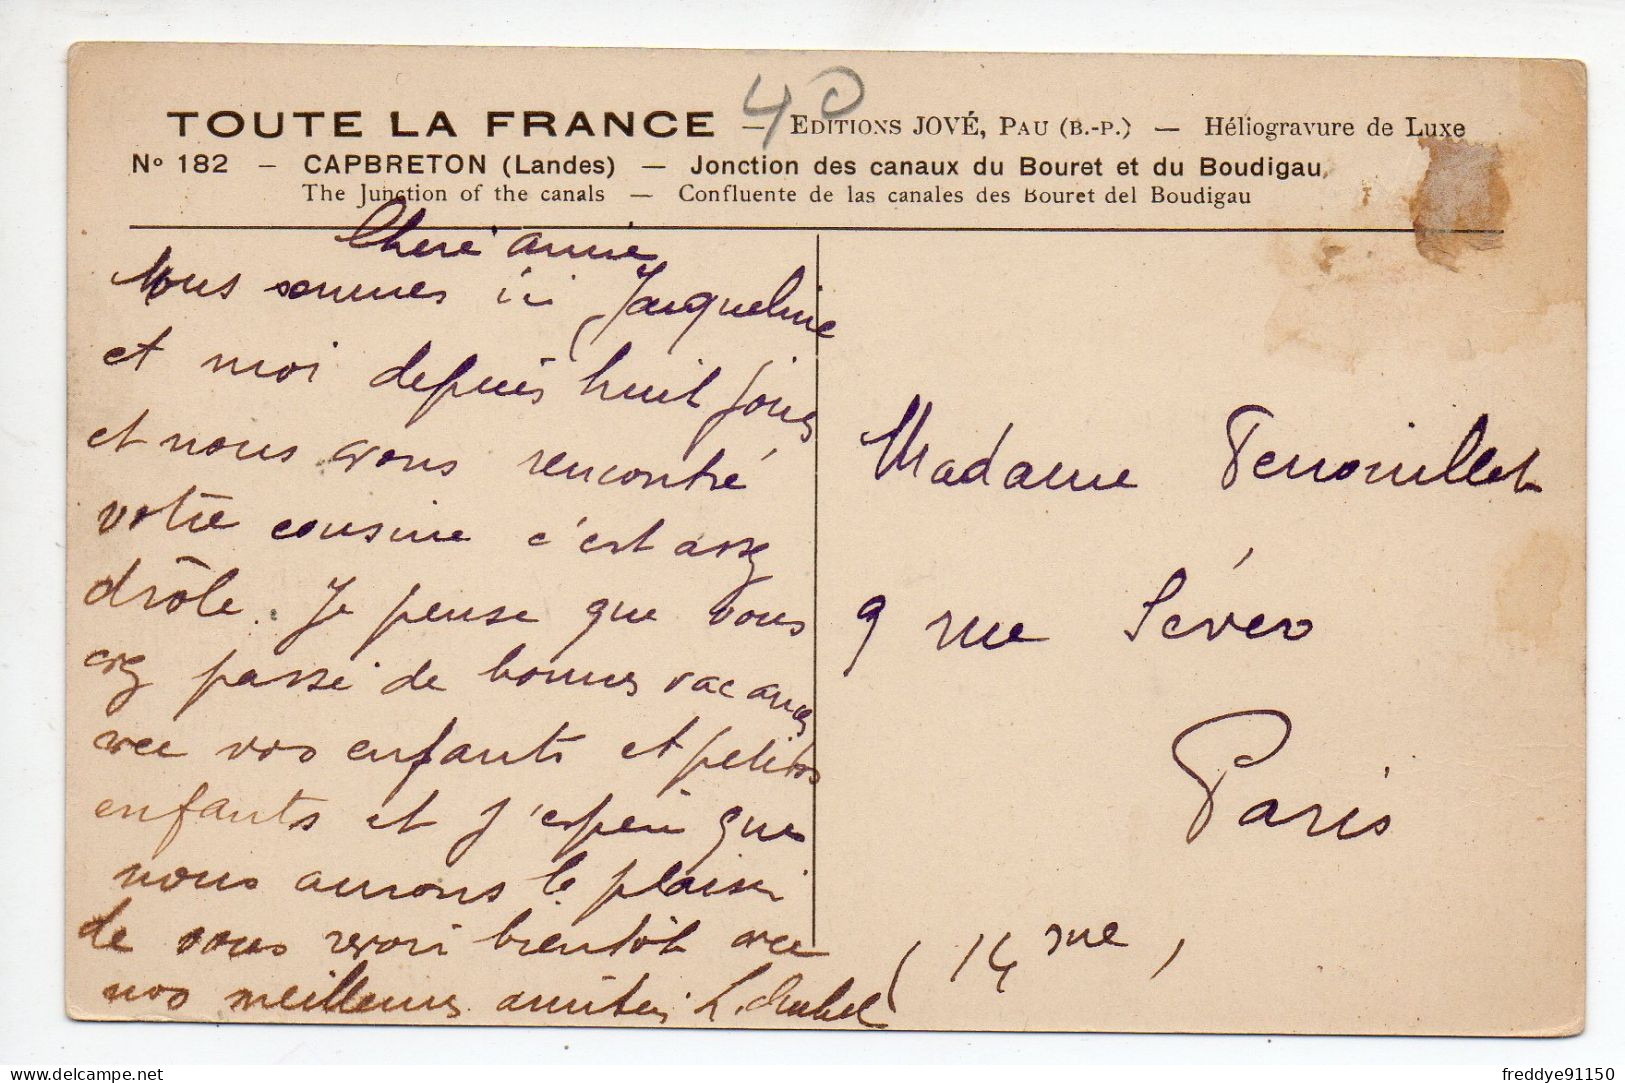 40
TOUTE LA FRANCE — EDITIONS JOVÉ, PAU (B.-P.) — Héliogravure de Luxe
No 182 — CAPBRETON (Landes) — Jonction des canaux du Bouret et du Boudigau
The Junction of the canals — Confluente de las canales des Bouret del Boudigau
Chere amie
Nous sommes ici Jacqueline
et moi depuis huit jours
et nous avons rencontré
votre cousine c'est assez
drôle. Je pense que vous
avez passé de bonnes vacances
avec vos enfants et petits
enfants et j'espère que
nous aurons le plaisir
de vous revoir bientôt avec
nos meilleures amitiés L.
Madame
9 rue Sévero
Paris
(14 me)
freddye91150